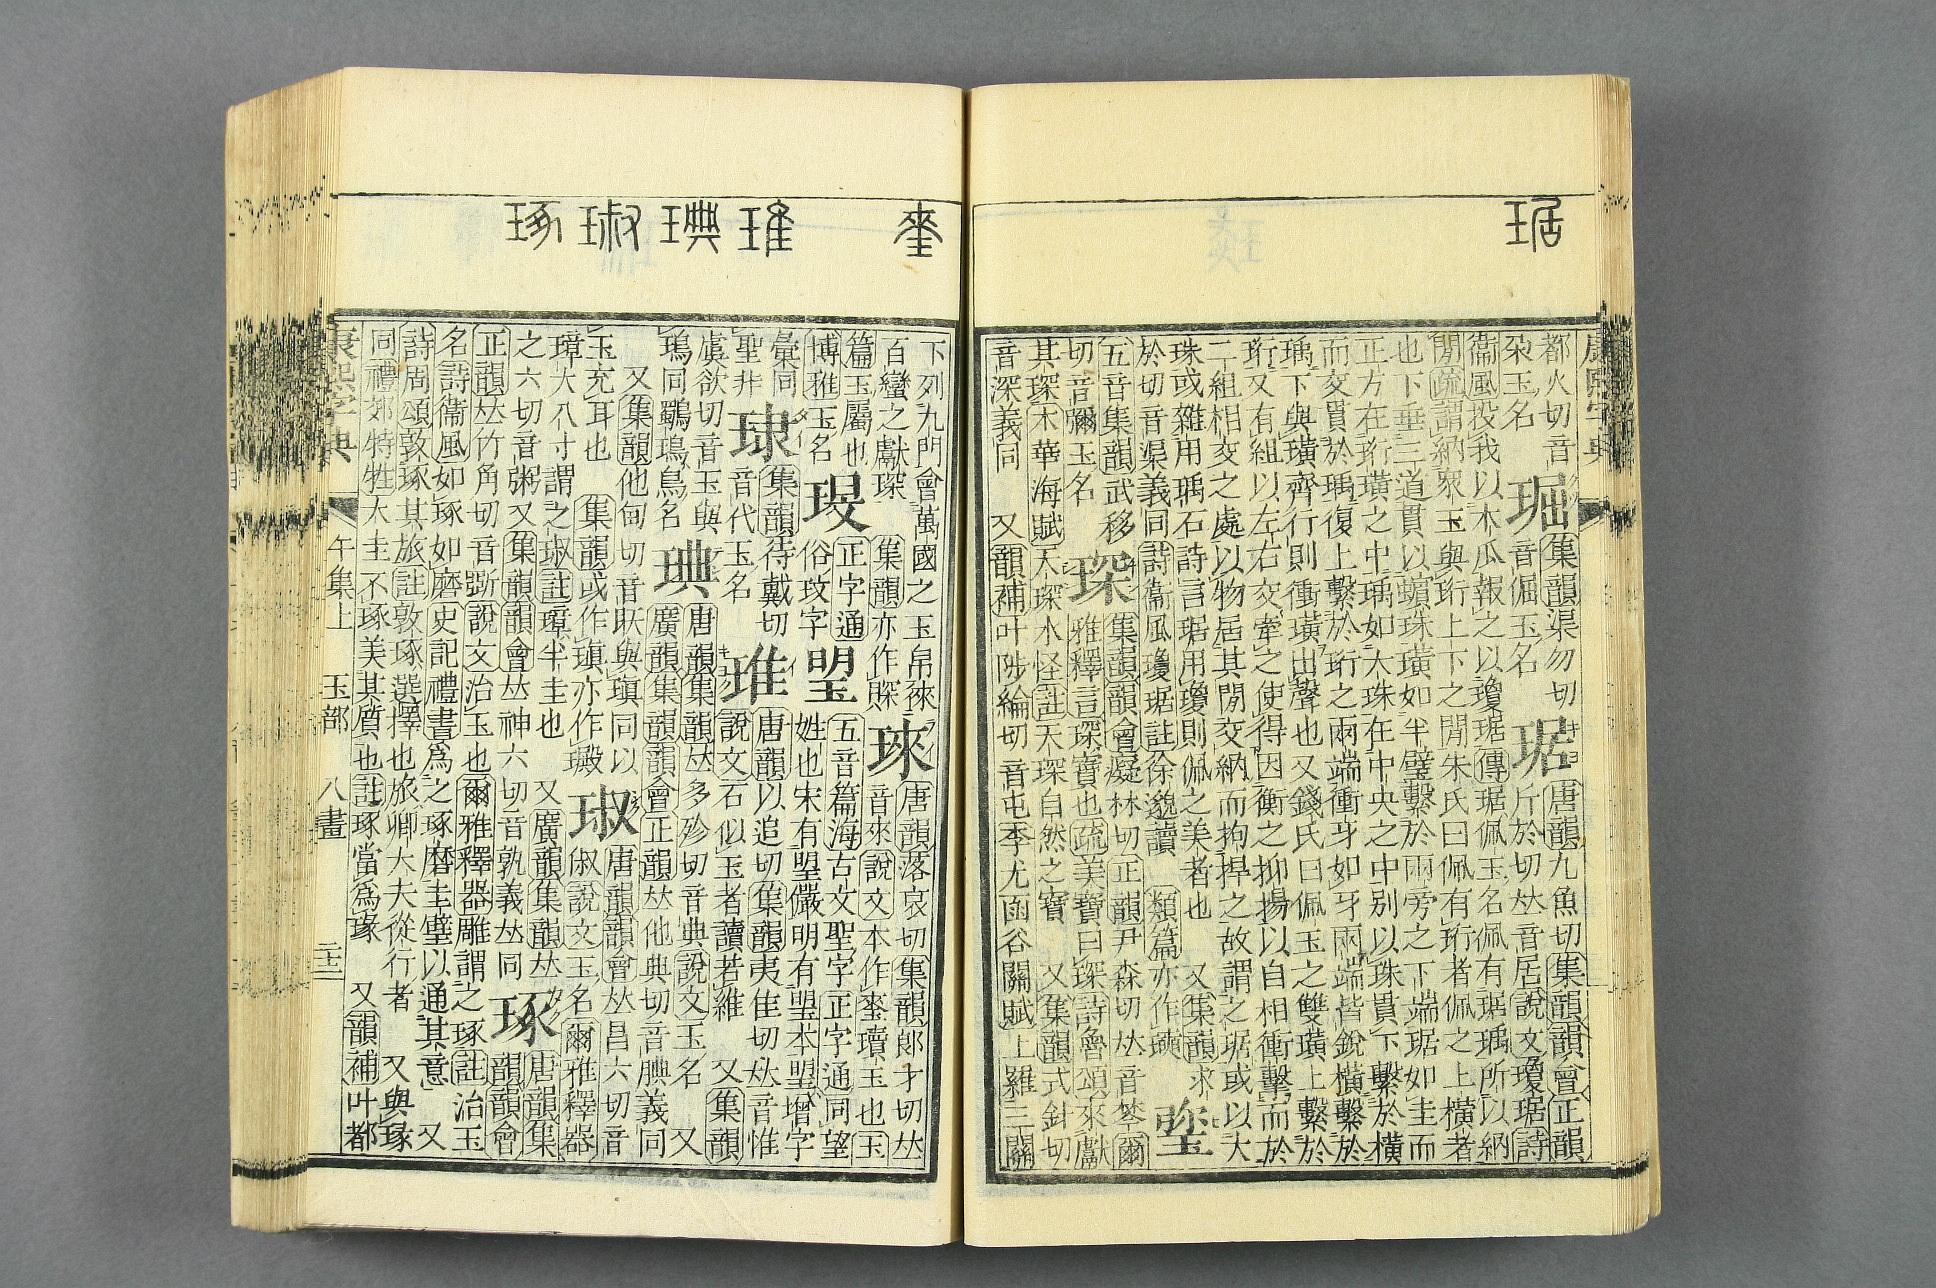 琚
康熙字典
都火切音
朶玉名
琚
集韻渠勿切
音倔玉名
琚
唐韻九魚切集韻韻會正韻
斤於切𠀤音居說文瓊琚詩
衞風投我以木瓜報之以瓊琚傳琚佩玉名佩有琚瑀所以納
閒疏謂納衆玉與珩上下之閒朱氏曰佩有珩者佩之上橫者
也下垂三道貫以蠙珠璜如半璧繫於兩旁之下端琚如圭而
正方在珩璜之中瑀如大珠在中央之中別以珠貫下繫於橫
而交貫於瑀復上繫於珩之兩端衝牙如牙兩端皆銳橫繫於
瑀下與璜齊行則衝璜出聲也又錢氏曰佩玉之雙璜上繫於
珩又有組以左右交牽之使得因衡之抑揚以自相衝擊而於
二組相交之處以物居其閒交納而拘捍之故謂之琚或以大
珠或雜用瑀石詩言琚用瓊則佩之美者也 又集韻求
於切音渠義同詩衞風瓊琚註徐邈讀 類篇亦作璖
五音集韻武移
切音彌玉名
琛
集韻韻會癡林切正韻尹森切𠀤音㻸爾
雅釋言琛寶也疏美寶曰琛詩魯頌來獻
其琛木華海賦天琛水怪註天琛自然之寶 又集韻式針切
音深義同 又韻補叶陟綸切音屯李尤函谷關賦上羅三關
琢 琡 琠 琟
下列九門會萬國之玉帛徠
百蠻之獻琛 集韻亦作賝
琜
唐韻落哀切集韻郞才切𠀤
音來說文本作瓄玉也玉
篇玉屬也
博雅玉名
正字通
俗玟字
琞
五音篇海古文聖字正字通同望
姓也宋有琞儼明有琞本琞增字
彙同
聖非
集韻待戴切
音代玉名
琟
唐韻以追切集韻夷隹切𠀤音惟
說文石似玉者讀若維 又集韻
虞欲切音玉與
鳿同鸀鳿鳥名
琠
唐韻集韻𠀤多殄切音典說文玉名 又
廣韻集韻韻會正韻𠀤他典切音腆義同
又集韻他甸切音瑱與瑱同以
玉充耳也 集韻或作瑱亦作㼭
琡
唐韻韻會𠀤昌六切音
俶說文玉名爾雅釋器
璋大八寸謂之琡註璋半圭也 又廣韻集韻𠀤
之六切音粥又集韻韻會𠀤神六切音孰義𠀤同
琢
唐韻集
韻韻會
正韻𠀤竹角切音斲說文治玉也爾雅釋器雕謂之琢註治玉
名詩衞風如琢如磨史記禮書爲之琢磨圭璧以通其意 又
詩周頌敦琢其旅註敦琢選擇也旅卿大夫從行者 又與瑑
同禮郊特牲大圭不琢美其質也註琢當爲瑑 又韻補叶都
康熙字典 午集上 玉部 八畫